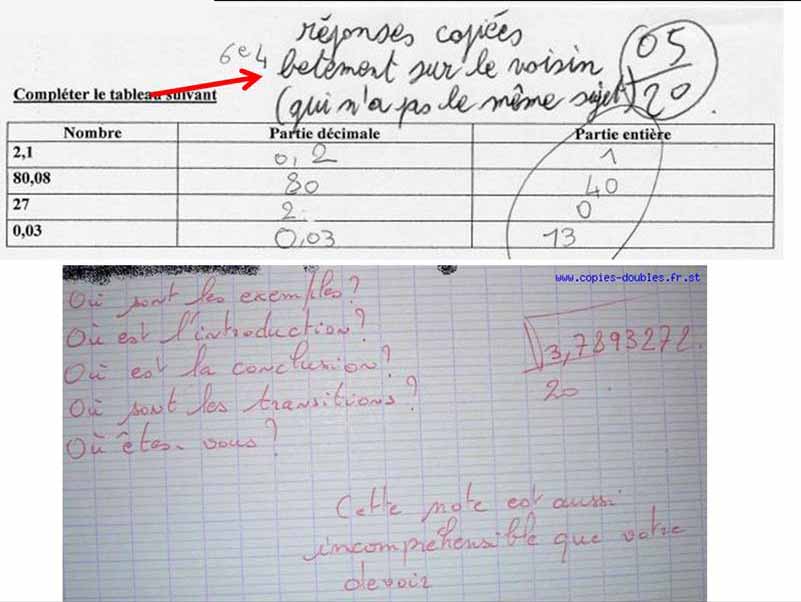 réponses copiées
6e4 betement sur le voisin
(qui n'a pas le même sujet)
05
20
Compléter le tableau suivant
Nombre Partie décimale Partie entière
2,1 0,2 1
80,08 80 40
27 2 0
0,03 0,03 13
www.copies-doubles.fr.st
Où sont les exemples?
Où est l'introduction?
Où est la conclusion?
Où sont les transitions?
Où êtes-vous?
√3,7893272
20
Cette note est aussi
incompréhensible que votre
devoir